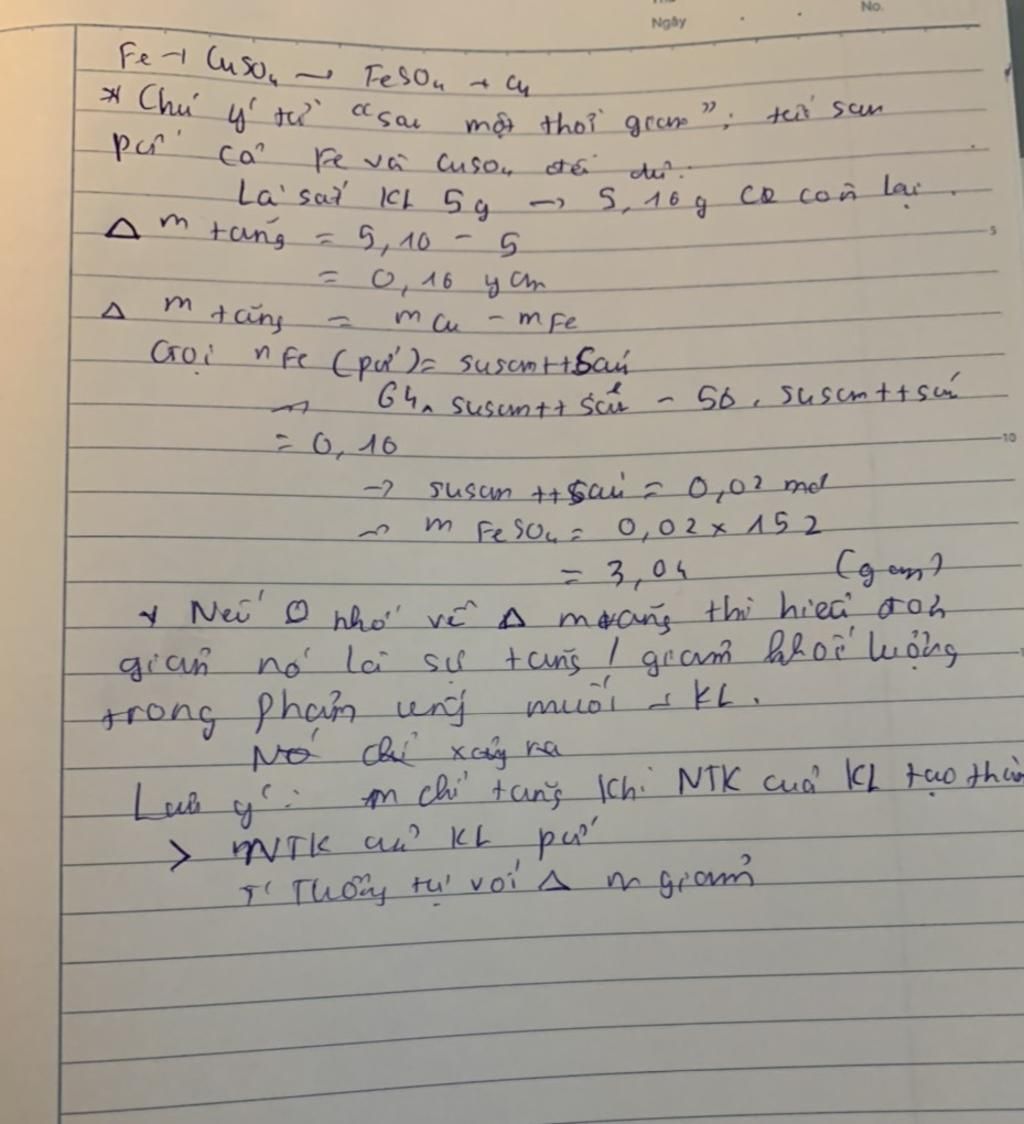 Ngày
No.
Fe + CuSO₄ → FeSO₄ + Cu
* Chú ý từ "sau một thời gian": tức sau
pứ cả Fe và CuSO₄ đều dư.
Lá sắt KL 5g → 5,16g CR còn lại.
Δ m tăng = 5,16 - 5
= 0,16 gam
Δ m tăng = m Cu - m Fe
Gọi n Fe (pứ) =
→ 64.
= 0,16
→ = 0,02 mol
→ m FeSO₄ = 0,02 x 152
= 3,04 (gam)
* Nếu 0 nhớ về Δ m tăng thì hiểu đơn
giản nó là sự tăng / giảm khối lượng
trong phản ứng muối + KL.
Nó chỉ xảy ra
Lưu ý: m chỉ tăng khi NTK của KL tạo thà
> NTK của KL pứ
Tương tự với Δ m giảm
5
10